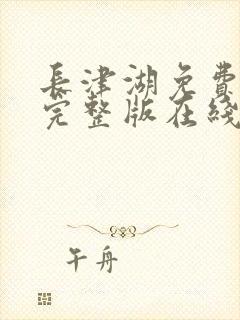 長津湖免費
完整版在綫
午舟